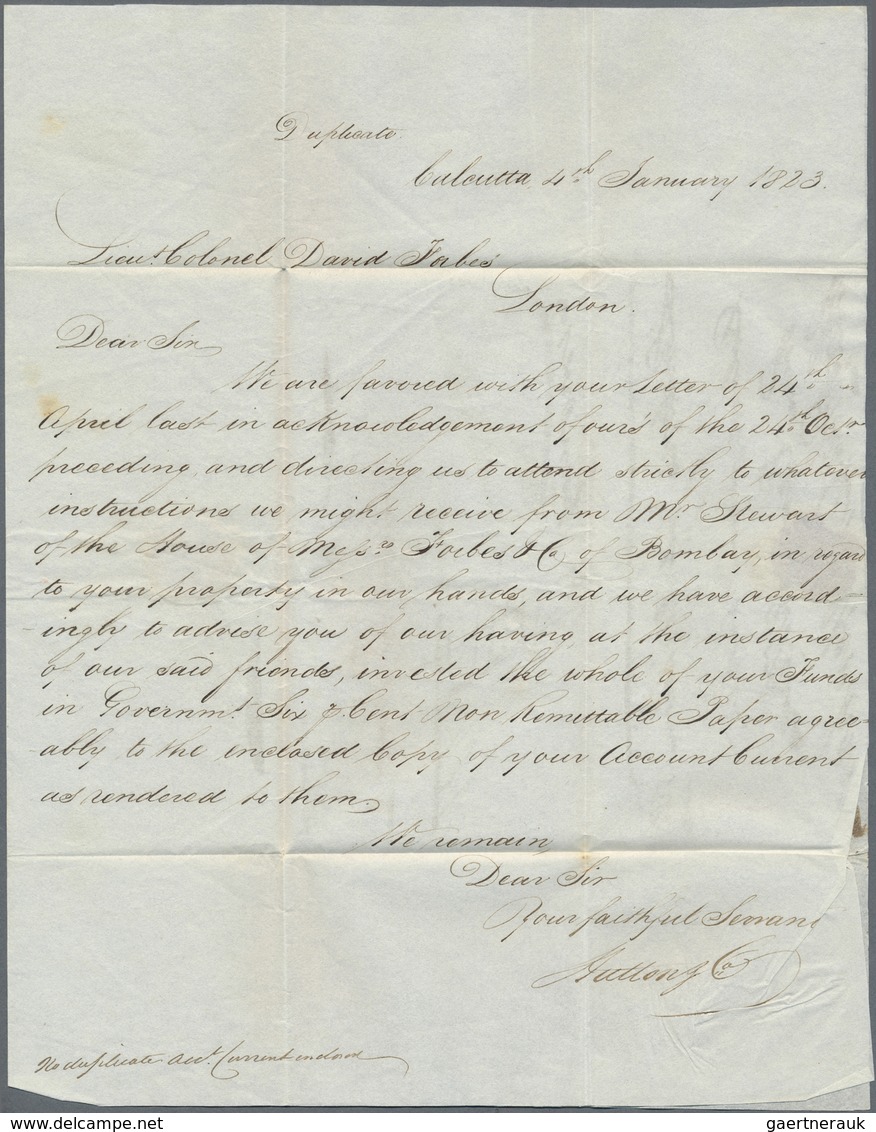 Duplicate.
Calcutta, 4th January 1823.
Lieut. Colonel David Forbes
London.
Dear Sir
We are favored with your Letter of 24th
April last in acknowledgement of our's of the 24th Octr.
preceding, and directing us to attend strictly to whatever
instructions we might receive from Mr. Stewart
of the House of Messrs. Forbes & Co of Bombay, in regard
to your property in our hands, and we have accord-
-ingly to advise you of our having, at the instance
of our said friends, invested the whole of your Funds
in Governmt. Six p. Cent Non Remittable Paper agree-
-ably to the inclosed Copy of your Account Current
as rendered to them.
We remain
Dear Sir
Your faithful Servant
& Co
No duplicate acct. Current inclosed
gaertnerauk